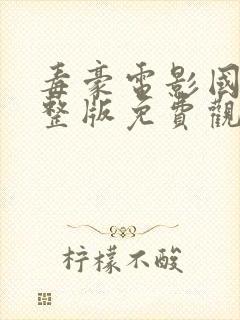 毒豪電影國
整版免費觀
柠檬不酸